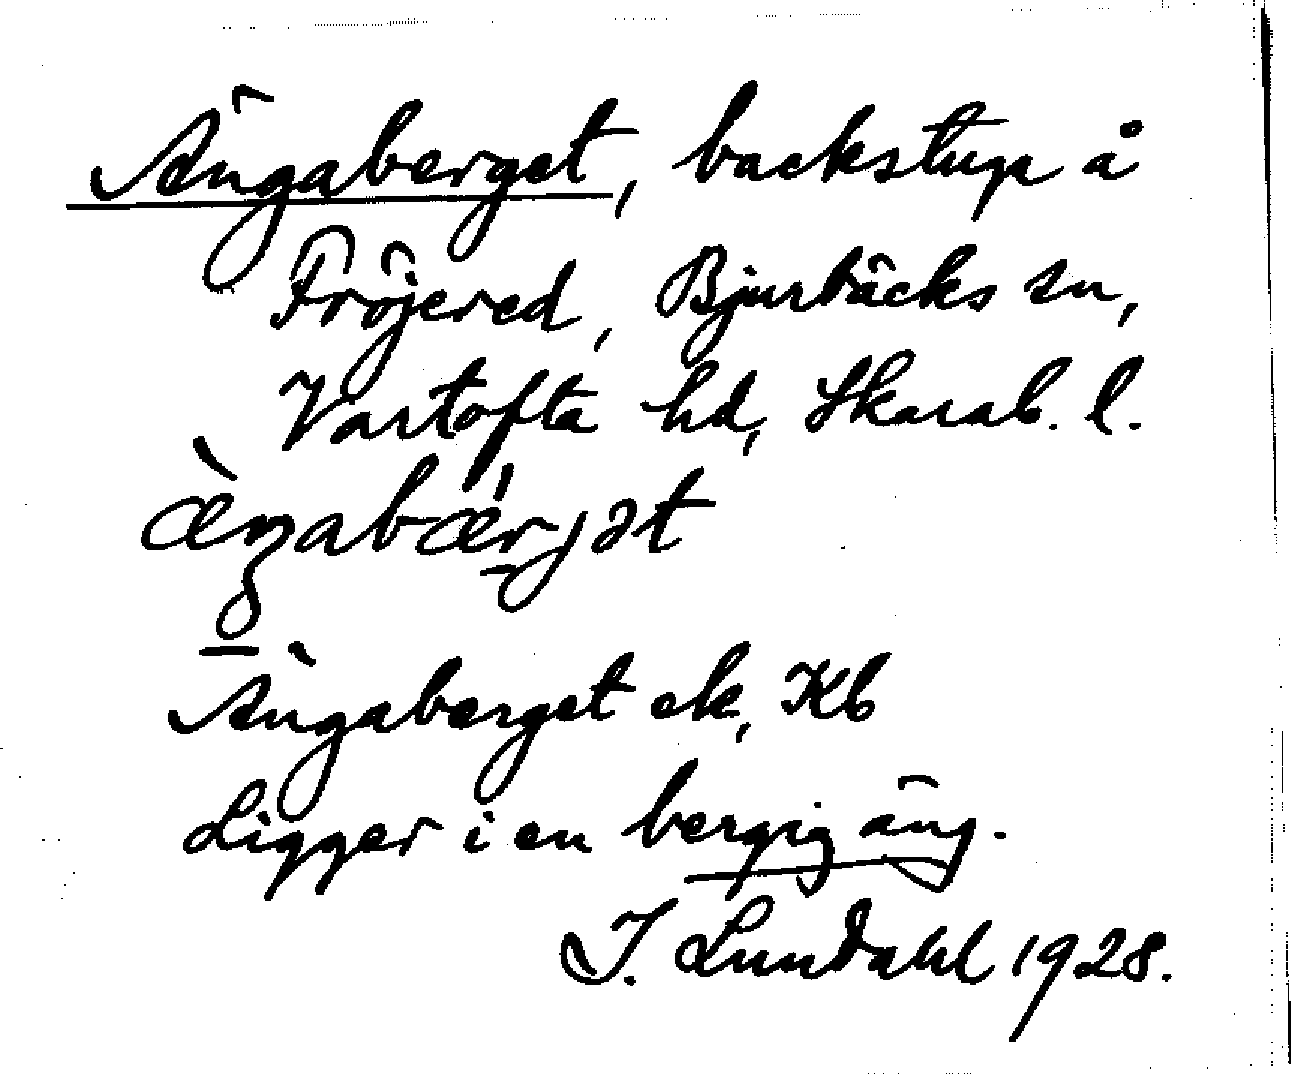 Ängaberget, backstuga å
Fröjered, Bjurbäcks sn,
Vartofta hd, Skarab. l.
æ̀ŋabǽrjət
Ängaberget ek, Kb
Ligger i en bergig äng.
I. Lundahl 1928.